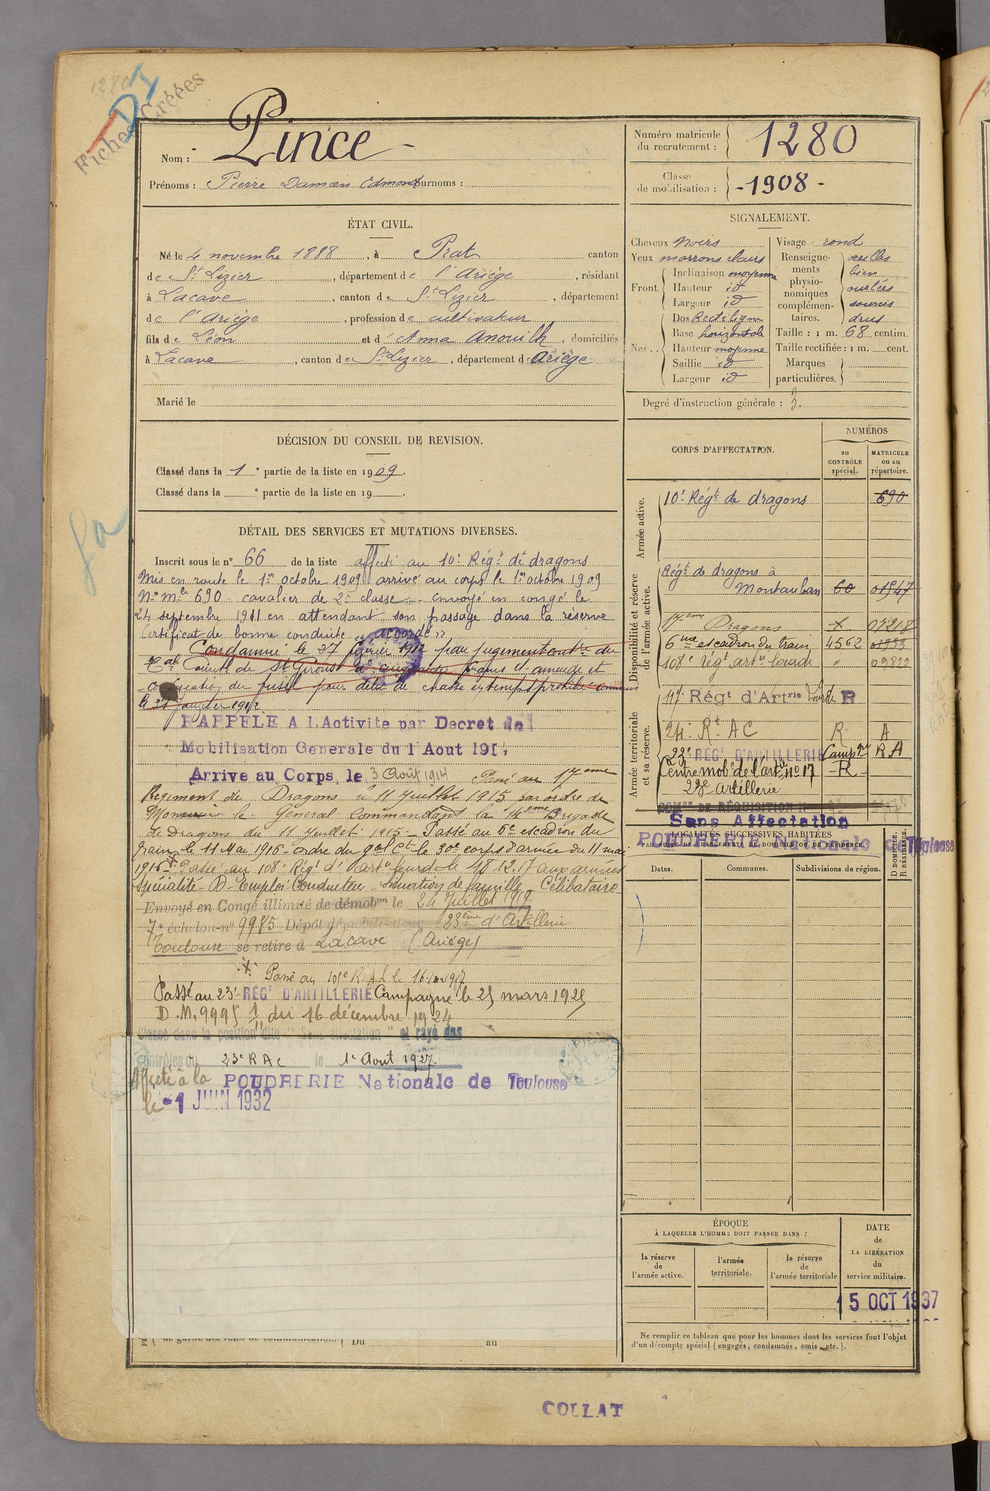 1280
DI
Fiches Créées
Nom : Pince
Prénoms : Pierre Damian Edmond Surnoms :
Numéro matricule du recrutement : 1280
Classe de mobilisation : - 1908 -
ÉTAT CIVIL.
Né le 4 novembre 1888, à Prat canton
de St Lizier, département de l'Ariège, résidant
à Lacave, canton de St Lizier, département
de l'Ariège, profession de cultivateur
fils de Léon et d'Anna Anouilh, domiciliés
à Lacave, canton de St Lizier, département d'Ariège
Marié le
SIGNALEMENT.
Cheveux noirs
Yeux marrons clairs
Front. Inclinaison moyenne
Hauteur id
Largeur id
Nez. Dos Rectiligne
Base horizontale
Hauteur moyenne
Saillie id
Largeur id
Visage rond
Renseignements physionomiques complémentaires. oreilles bien ourlées sourcis drus
Taille : 1 m. 68 centim.
Taille rectifiée : 1 m. cent.
Marques particulières.
Degré d'instruction générale : 3.
DÉCISION DU CONSEIL DE REVISION.
Classé dans la 1e partie de la liste en 1909.
Classé dans la e partie de la liste en 19
DÉTAIL DES SERVICES ET MUTATIONS DIVERSES.
Inscrit sous le n° 66 de la liste affecté au 10e Régt de dragons
Mis en route le 1er octobre 1909 arrivé au corps le 1er octobre 1909
N° Mle 690 cavalier de 2e classe. Envoyé en congé le
24 septembre 1911 en attendant son passage dans la réserve
Certificat de bonne conduite "accordé".
Condamné le 27 février 1912 par jugement du
de St Girons à d'amende et
du fusil pour délit de chasse en temps prohibé commis
le 31 janvier 1912.
RAPPELE A L'Activite par Decret de
Mobilisation Generale du 1 Aout 1914
Arrive au Corps, le 3 Août 1914 Passé au 17eme
Régiment de Dragons le 11 Juillet 1915 par ordre de
Monsieur le Général Commandant la 14eme Brigade
de Dragons du 11 Juillet 1915 - Passé au 6e escadron du
train le 11 Mai 1916 - ordre du gal Ct le 30e corps d'armée du 11 mai
1916 * Passé au 108e Régt d'Art. lourde le 28.12.17 aux armées
Spécialité - D - Emploi : Conducteur - Situation de famille - Célibataire
Envoyé en Congé illimité de démobon le 24 Juillet 1919
7e échelon n° 9985 Dépôt démobilisateur 23eme d'Artillerie
Toulouse se retire à Lacave (Ariège)
* Passé au R.A.L. le 16
Passé au 23e RÉGt D'ARTILLERIE Campagne le 25 mars 1925
D.M. 9995 du 16 décembre 1924
Classé dans la position dite "Sans affectation" et rayé des
contrôles du 23e R A C le 1er Aout 1927.
Affecté à la POUDRERIE Nationale de Toulouse
le -1 JUIN 1932
CORPS D'AFFECTATION.
NUMÉROS
au CONTRÔLE spécial.
MATRICULE ou au répertoire.
Armée active.
10e Régt de dragons 690
Disponibilité et réserve de l'armée active.
Régt de dragons à
Montauban 60 01947
17eme Dragons - x 07218
6eme escadron du train 4562
108e Régt artie lourde " 09822
Armée territoriale et sa réserve.
117e Régt d'Artrie Lourde R
24e Rt AC R A
23e RÉGt D'ARTILLERIE Campne R A
Centre mobr de l'artie n° 17 - R -
23e artillerie
Sans Affectation
POUDRERIE Nationale de Toulouse
LOCALITÉS SUCCESSIVES HABITÉES
PAR SUITE DE CHANGEMENTS DE DOMICILE OU DE RÉSIDENCE.
Dates.
Communes.
Subdivisions de région.
D DOMICILE. R RÉSIDENCE.
ÉPOQUE
À LAQUELLE L'HOMME DOIT PASSER DANS :
la réserve de l'armée active.
l'armée territoriale.
la réserve de l'armée territoriale
DATE de LA LIBÉRATION du service militaire.
15 OCT 1937
Ne remplir ce tableau que pour les hommes dont les services font l'objet
d'un décompte spécial (engagés, condamnés, omis, etc.).
Du au
COLLAT